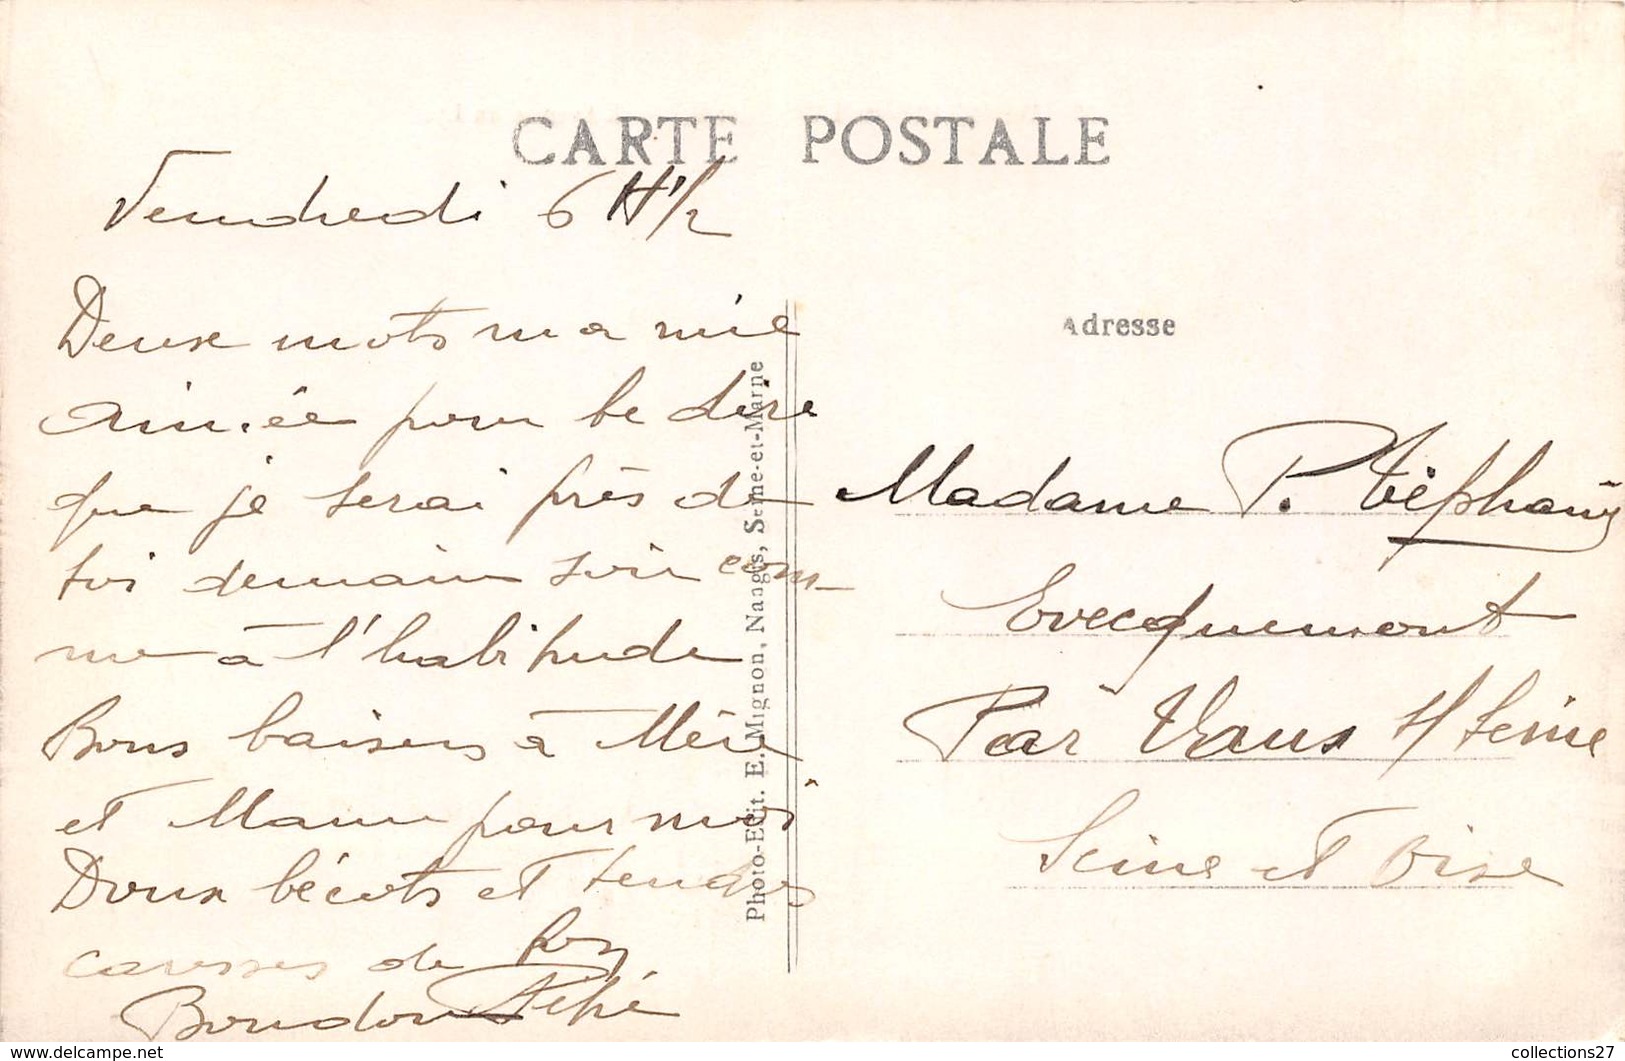 CARTE POSTALE
Vendredi 6 H 1/2
Deux mots ma mie
aimée pour te dire
que je serai près de
toi demain soir com-
me à l'habitude
Bons baisers à Mère
et Maman pour moi
Doux bécots et tendres
caresses de ton
Boudou
Photo-Edit. E. Mignon, Nangis, Seine-et-Marne
Adresse
Madame P. Stéphany
Evecquemont
Par Vaux s/ Seine
Seine et Oise
collections27